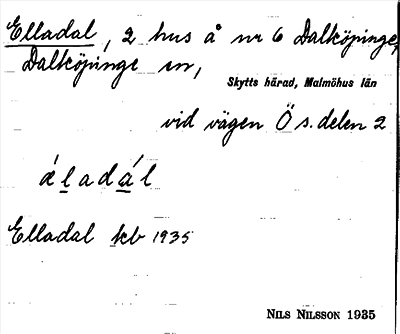 Elladal, 2 hus å nr 6 Dalköpinge,
Dalköpinge sn,
Skytts härad, Malmöhus län
vid vägen Ö s. delen 2
áladál
Elladal kb 1935
NILS NILSSON 1935